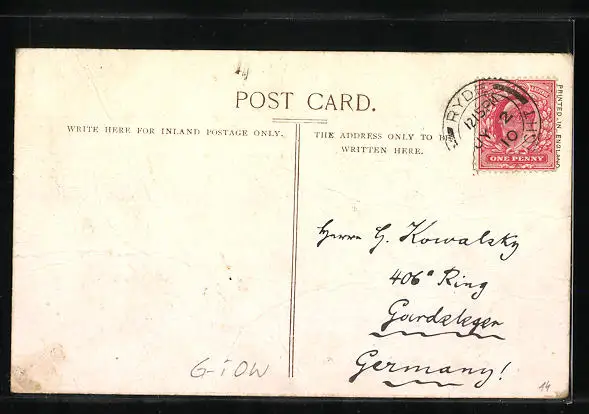 POST CARD.
WRITE HERE FOR INLAND POSTAGE ONLY.
THE ADDRESS ONLY TO BE
WRITTEN HERE.
RYDE
12 15 PM
JY 2
10
ONE PENNY
PRINTED IN ENGLAND
Herrn G. Kowalsky
406a Ring
Gardelegen
Germany!
G-iOW
14